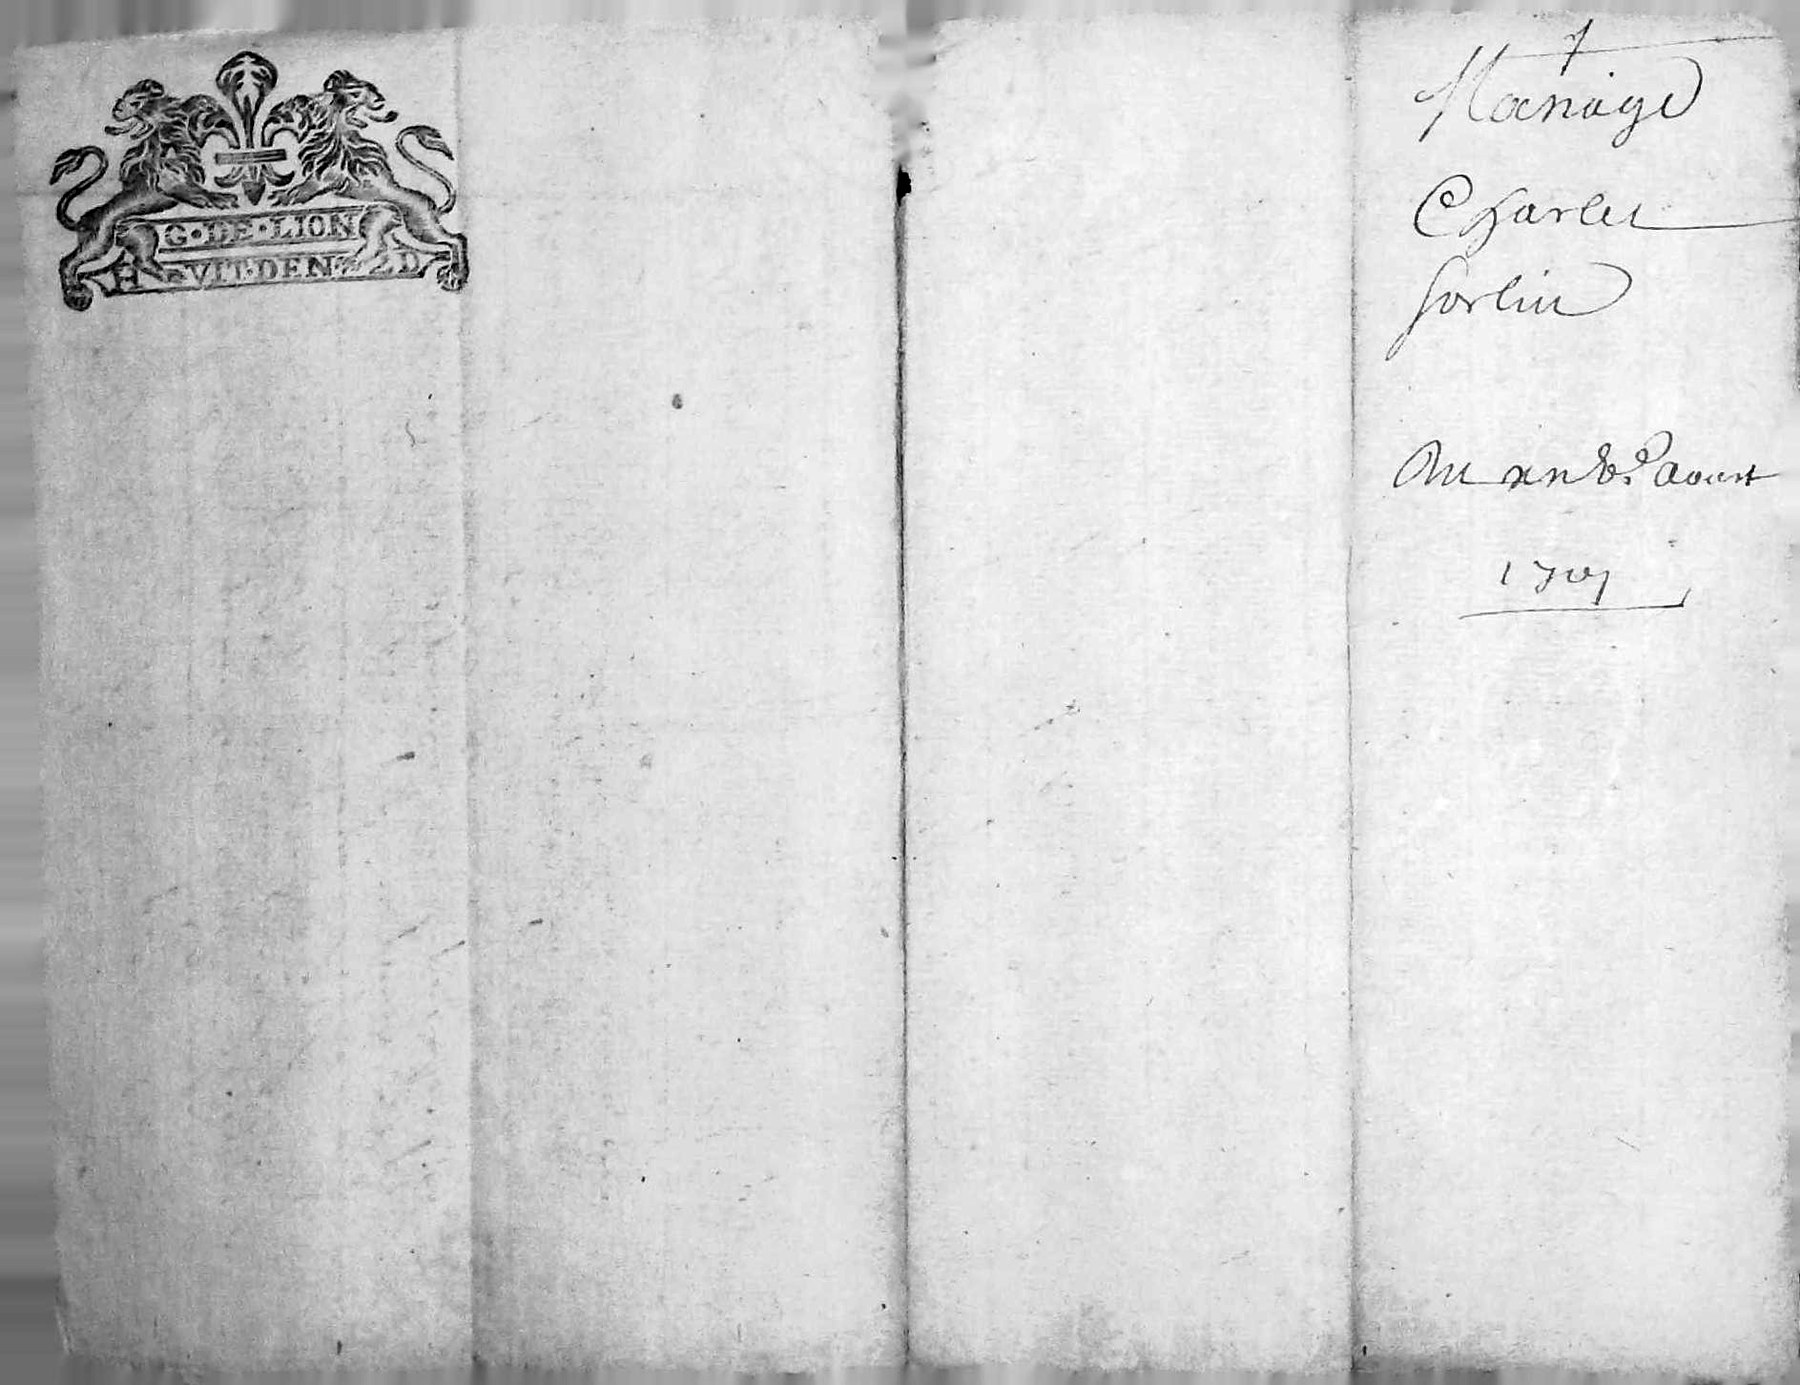 G·DE·LION
HVIT·DEN·D
Mariage
Charles
Sorlin
Du aoust
1701